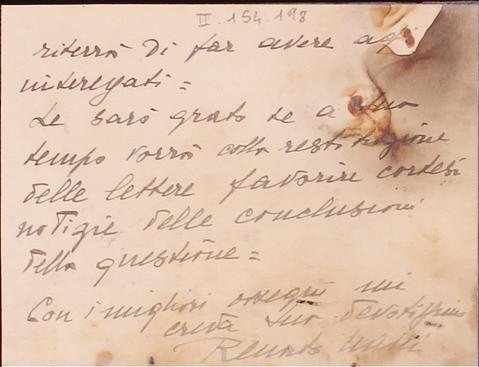 II.154.198
riterrà di far avere agli
interessati =
Le sarò grato se a suo
tempo vorrà colla restituzione
delle lettere favorire cortesi
notizie delle conclusioni
della questione =
Con i migliori ossequi mi
creda suo devotissimo
Renato